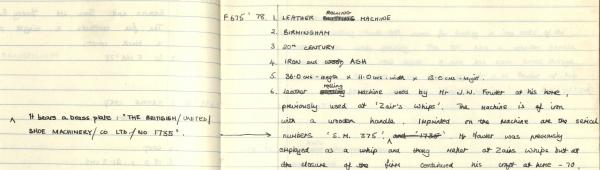 F675'78. 1. LEATHER ROLLING MACHINE
2. BIRMINGHAM
3. 20TH CENTURY
4. IRON and ASH
5. 36.0 cms - length x 11.0 cms. width x 13.0 cms - height.
6. Leather rolling machine used by Mr J.W. Fowler at his home,
previously used at 'Zair's Whips'. The machine is of iron
with a wooden handle. Imprinted on the machine are the serial
numbers 'S.M. 375' ^ and '1735' Mr Fowler was previously
employed as a whip and thong maker at Zairs Whips but at
the closure of the firm continued his craft at home - 70,
^ It bears a brass plate: 'THE BRITISH/UNITED/
SHOE MACHINERY/CO LTD/NO 1735'.